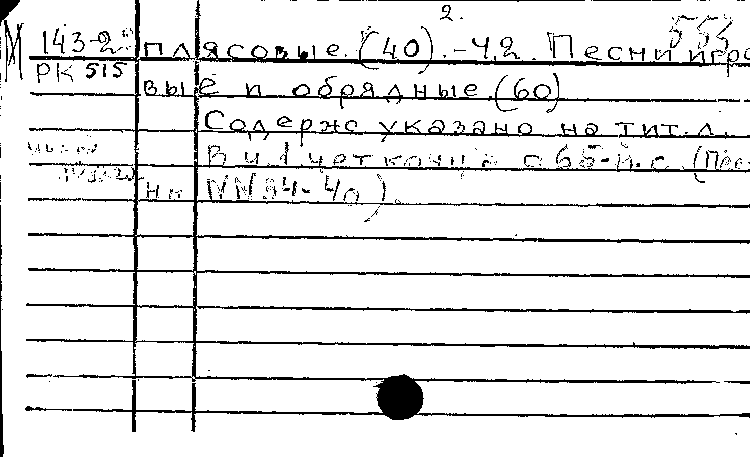 2.
553
143-2
плясовые. (40). -Ч.2. Песни игро
РК 515
вые и обрядные. (60)
Содерж указано на тит. л.
В ч.1 нет конца с 65-й с. (Пес
ни NN 34-40).